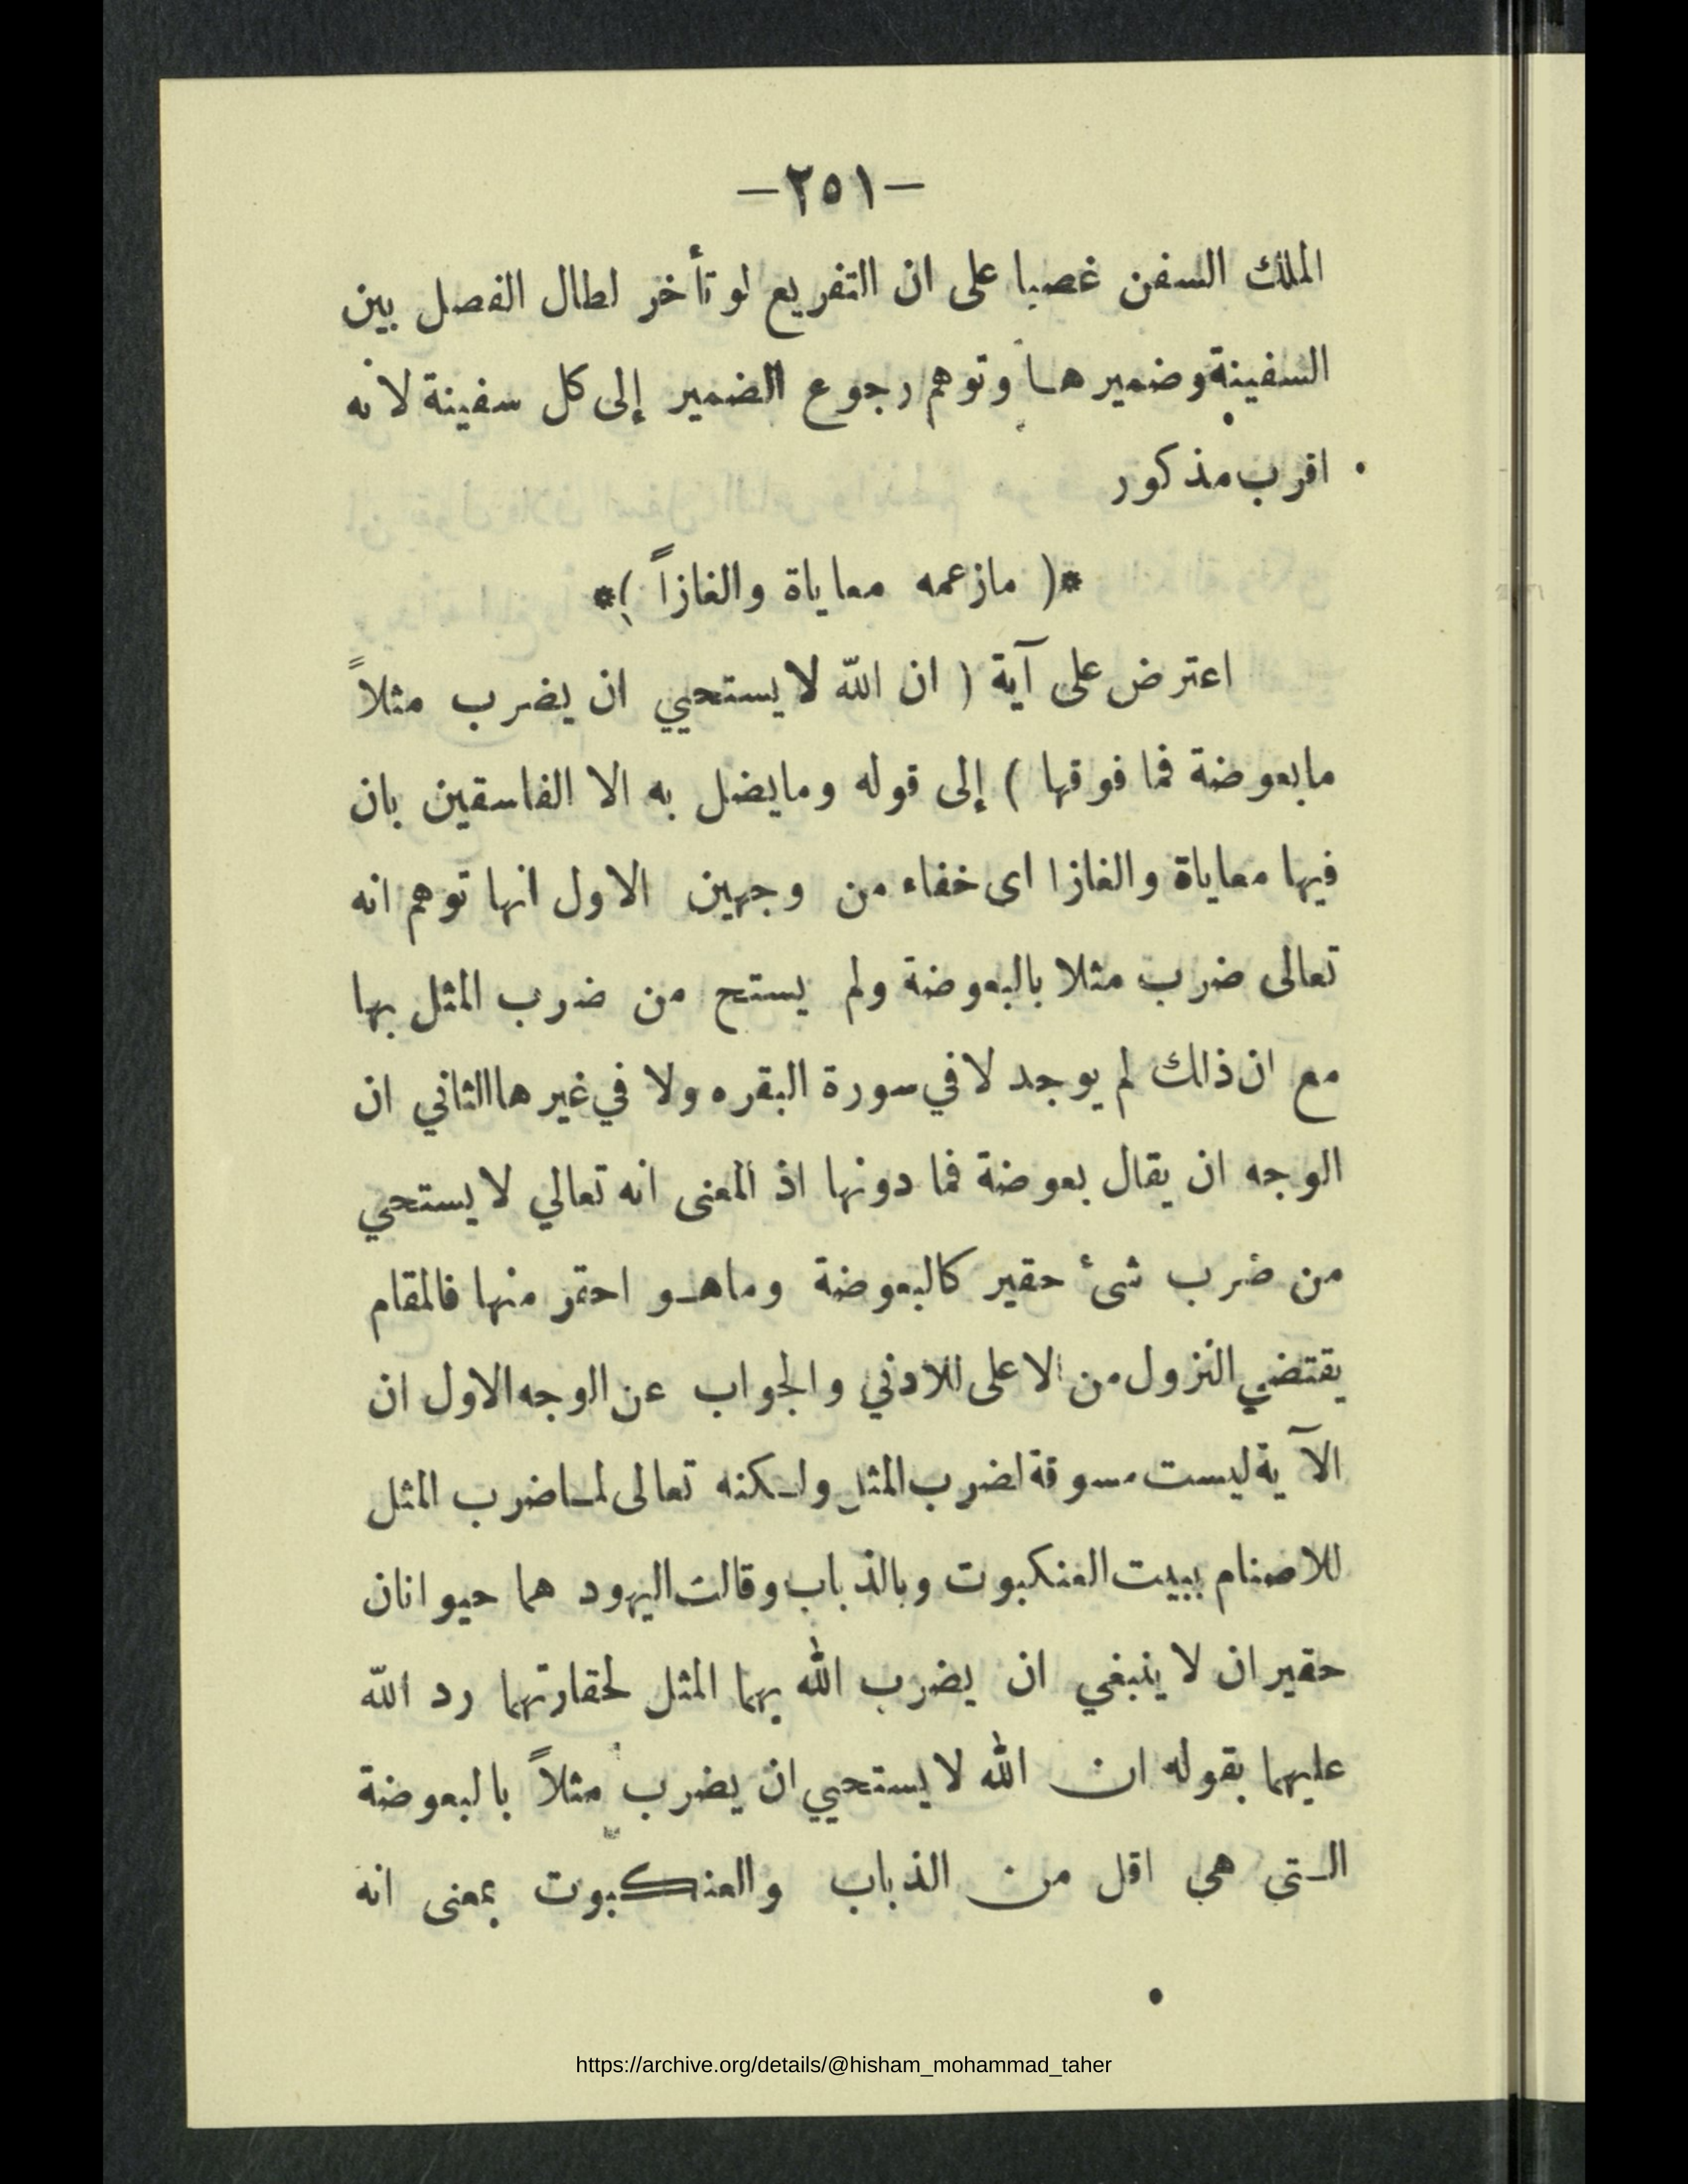 —٢٥١—
الملك السفن غصبا على ان التفريع لو تأخر لطال الفصل بين
السفينة وضميرها وتوهم رجوع الضمير إلى كل سفينة لانه
اقرب مذكور
*( مازعمه معاياة والغازاً )*
اعترض على آية ( ان الله لا يستحيي ان يضرب مثلاً
مابعوضة فما فوقها ) إلى قوله ومايضل به الا الفاسقين بان
فيها معاياة والغازا اى خفاء من وجهين الاول انها توهم انه
تعالى ضرب مثلا بالبعوضة ولم يستح من ضرب المثل بها
مع ان ذلك لم يوجد لا في سورة البقره ولا في غيرها الثاني ان
الوجه ان يقال بعوضة فما دونها اذ المعنى انه تعالي لا يستحي
من ضرب شئ حقير كالبعوضة وماهـو احقر منها فالمقام
يقتضي النزول من الاعلى للادني والجواب عن الوجه الاول ان
الآية ليست مسوقة لضرب المثل ولـكنه تعالى لمـاضرب المثل
للاصنام ببيت العنكبوت وبالذباب وقالت اليهود هما حيوانان
حقيران لا ينبغي ان يضرب الله بهما المثل لحقارتهما رد الله
عليهما بقوله ان الله لا يستحيي ان يضرب مثلاً بالبعوضة
الـتى هي اقل من الذباب والعنكبوت بمعنى انه
https://archive.org/details/@hisham_mohammad_taher